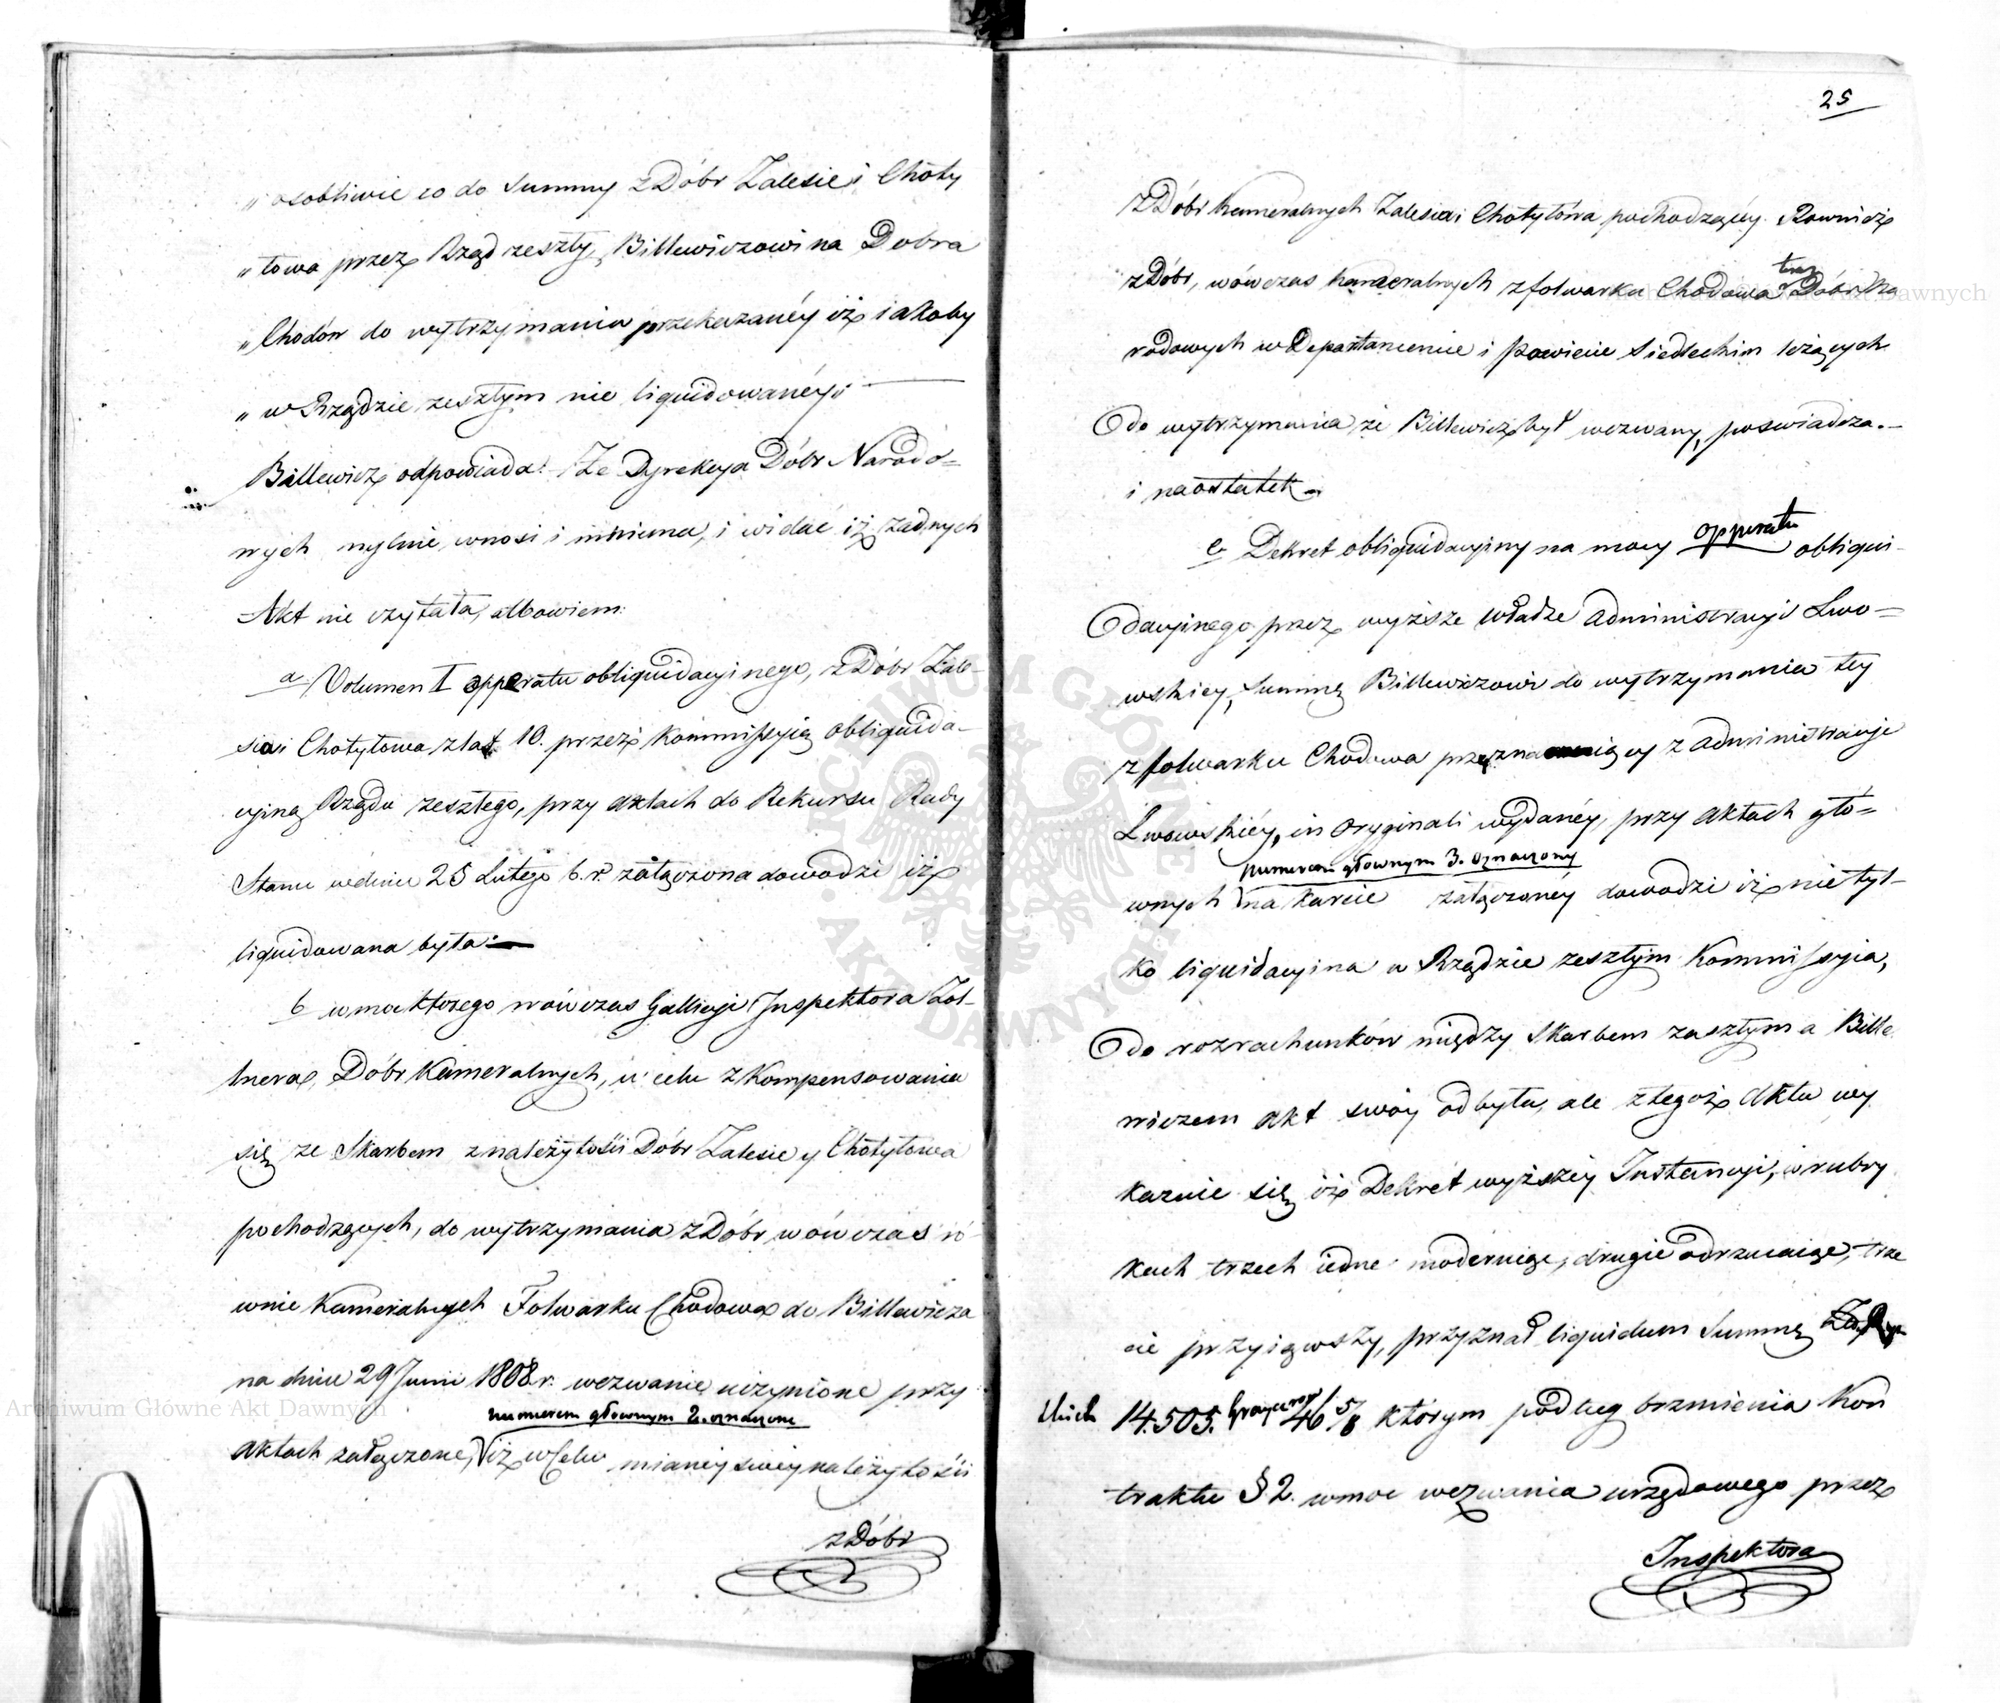 „ osobliwie co do Summy z Dóbr Zalesie i Choty
„ towa przez Rząd zeszły, Billewiczowi na Dobra
„ Chodów do wytrzymania przekazanéy iż iakoby
„ w Rządzie zeszłym nie liquidowanéy.
Billewicz odpowiada: Że Dyrekcya Dóbr Narodo=
wych mylnie wnosi i mniema, i widać iż żadnych
Akt nie czytała, albowiem:
a. Volumen I apperatu obliquidacyinego, z Dóbr Zale-
sia i Chotyłowa z lat 10. przez Kommissyią obliquida-
cyiną Rządu zeszłego, przy aktach do Rekursu Rady
Stanu w dniu 25 Lutego b.r. załączona dowodzi iż
liquidowana była.
b w moc którego wówczas Gallicyi Inspektora Zol-
lnera, Dóbr Kameralnych, w celu zKompensowania
się ze Skarbem z należytości Dóbr Zalesie y Chotyłowa
pochodzących, do wytrzymania z Dóbr wówczas ró-
wnie Kameralnych Folwarku Chodowa do Billewicza
na dniu 29 Junii 1808 r. wezwanie uczynione przy
numerem głownym 2. oznaczone
aktach załączone, iż w Celu mianey swey należytości
z Dóbr
25
z Dóbr Kameralnych Zalesia i Chotyłowa pochodzącéy. Rownież
z Dóbr, wówczas Kameralnych z folwarku Chodowa teraz Dóbr Na
rodowych w Departamencie i Powiecie Siedleckim leżących
do wytrzymania że Billewicz był wezwany, poswiadcza.
i naostatek
c. Dekret obliquidacyiny na mocy opperatu obliqui-
dacyinego przez wyższe władze administracyi Lwo=
wskiey, Summę Billewiczowi do wytrzymania tey
z folwarku Chodowa przeznaczaiący z administracyi
Lwowskiéy, in Oryginali wydanéy, przy aktach głó=
numerem głownym 3. oznaczony
wnych na karcie załączonéy dowodzi iż nie tyl-
ko liquidacyina w Rządzie zeszłym Kommissyia,
do rozrachunków między Skarbem zaszłym a Bille
wiczem akt swóy odbyła, ale z tegoż Aktu wy
kazuie się iż Dekret wyższéy Instancyi, w rubry
kach trzech iedne moderuiąc, drugie odrzucaiąc, trze
cie przyiąwszy, przyznał liquidum Summę
14.505. 46 5/8 którym podług brzmienia Kon
traktu § 2. w moc wezwania urzędowego przez
Inspektora
Archiwum Główne Akt Dawnych